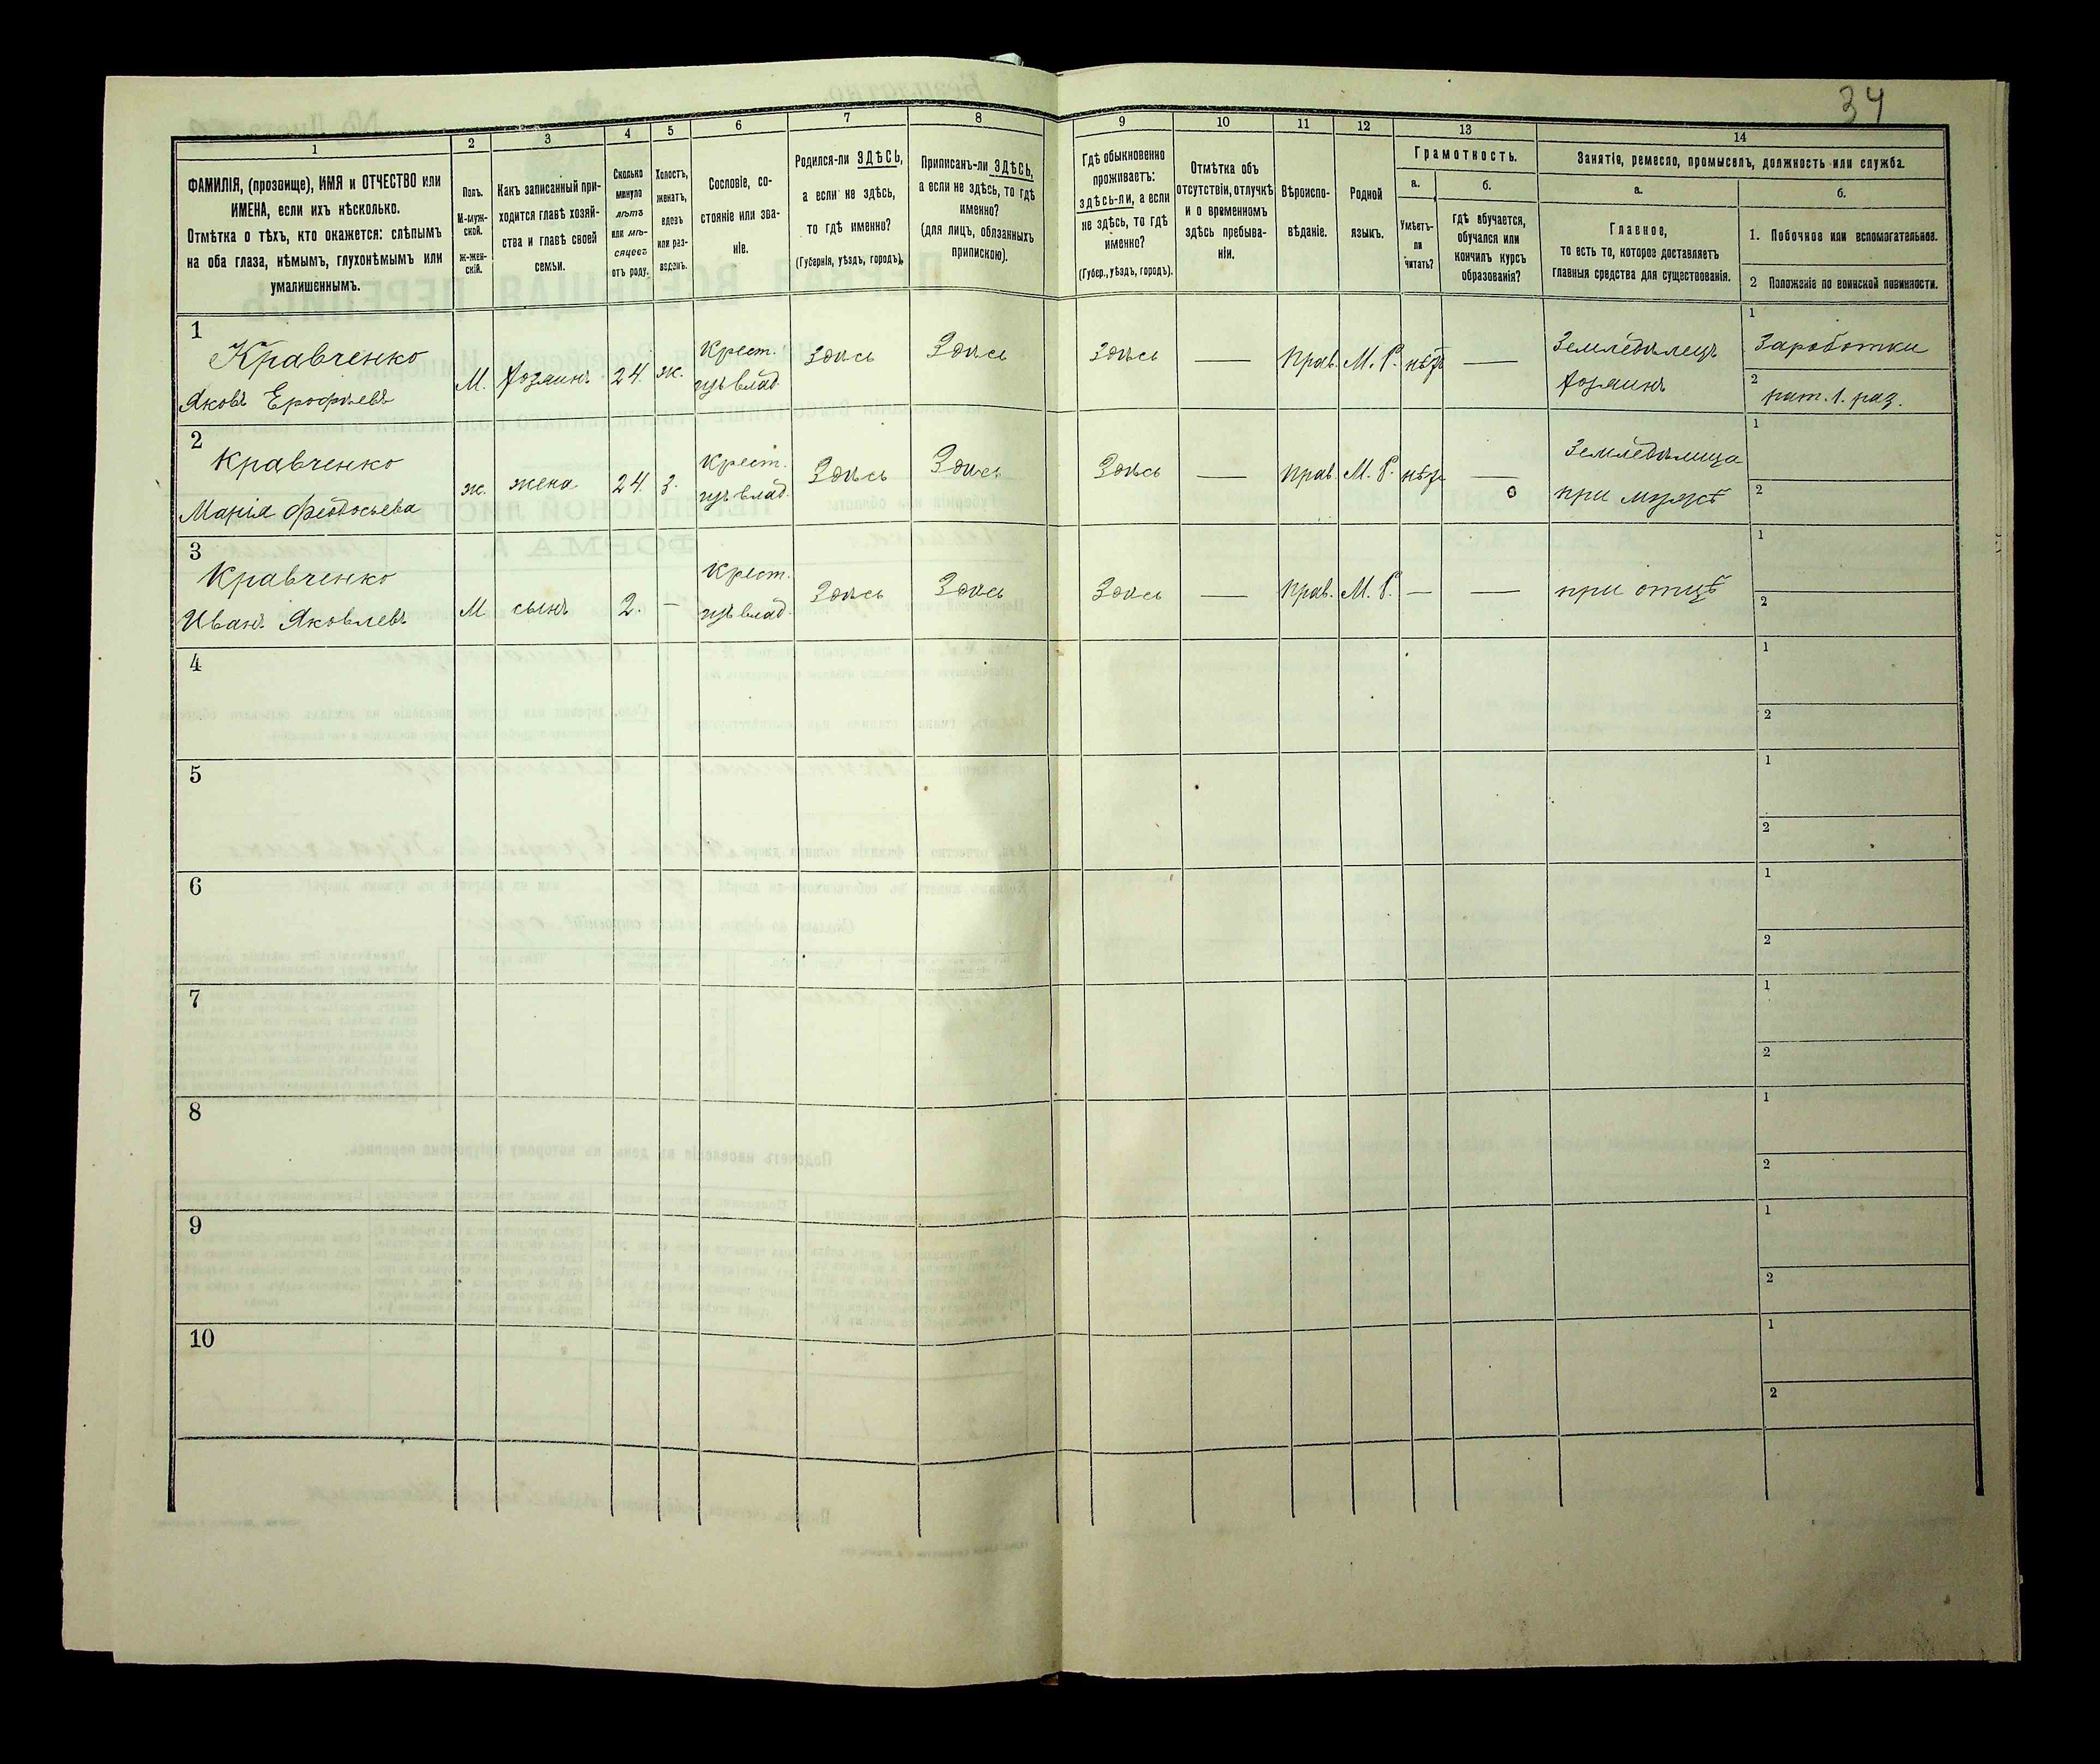 34
1
2
3
4
5
6
7
8
9
10
11
12
13
14
ФАМИЛІЯ, (прозвище), ИМЯ и ОТЧЕСТВО или
ИМЕНА, если ихъ нѣсколько.
Отмѣтка о тѣхъ, кто окажется: слѣпымъ
на оба глаза, нѣмымъ, глухонѣмымъ или
умалишеннымъ.
Полъ.
М-муж-
ской.
Ж-жен-
скій.
Какъ записанный при-
ходится главѣ хозяй-
ства и главѣ своей
семьи.
Сколько
минуло
лѣтъ
или мѣ-
сяцевъ
отъ роду.
Холостъ,
женатъ,
вдовъ
или раз-
веденъ.
Сословіе, со-
стояніе или зва-
ніе.
Родился-ли ЗДѢСЬ,
а если не здѣсь,
то гдѣ именно?
(Губернія, уѣздъ, городъ).
Приписанъ-ли ЗДѢСЬ,
а если не здѣсь, то гдѣ
именно?
(для лицъ, обязанныхъ
припискою).
Гдѣ обыкновенно
проживаетъ:
здѣсь-ли, а если
не здѣсь, то гдѣ
именно?
(Губер., уѣздъ, городъ).
Отмѣтка объ
отсутствіи, отлучкѣ
и о временномъ
здѣсь пребыва-
ніи.
Вѣроиспо-
вѣданіе.
Родной
языкъ.
Грамотность.
а.
Умѣетъ-
ли
читать?
б.
гдѣ обучается,
обучался или
кончилъ курсъ
образованія?
Занятіе, ремесло, промыселъ, должность или служба.
а.
Главное,
то есть то, которое доставляетъ
главныя средства для существованія.
б.
1. Побочное или вспомогательное.
2 Положеніе по воинской повинности.
1
Кравченко
Яковъ Ерофѣевъ
М.
хозяинъ
24.
ж.
Крест.
изъ влад.
Здѣсь
Здѣсь
Здѣсь
—
прав.
М. Р.
нѣтъ
—
Земледѣлецъ
хозяинъ
1
Заработки
2
рат. 1. раз.
2
Кравченко
Марія Феодосьева
ж.
жена
24.
з.
Крест.
изъ влад.
Здѣсь
Здѣсь
Здѣсь
—
прав.
М. Р.
нѣтъ
—
Земледѣлица
при мужѣ
1
2
3
Кравченко
Иванъ Яковлевъ
М
сынъ
2.
—
Крест.
изъ влад.
Здѣсь
Здѣсь
Здѣсь
—
прав.
М. Р.
—
—
при отцѣ
1
2
4
1
2
5
1
2
6
1
2
7
1
2
8
1
2
9
1
2
10
1
2